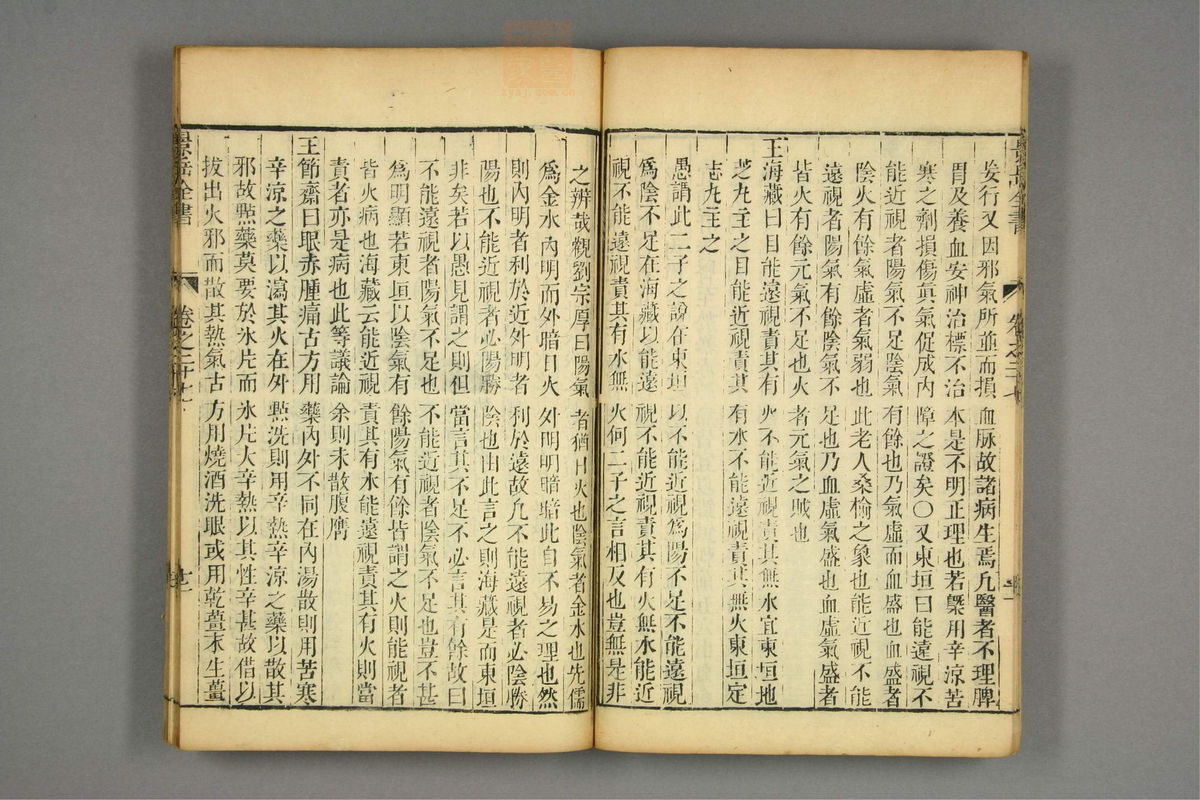 妄行又因邪氣所並而損血脉故諸病生焉凡醫者不理脾
胃及養血安神治標不治本是不明正理也若槩用辛涼苦
寒之劑損傷真氣促成內障之證矣〇又東垣曰能遠視不
能近視者陽氣不足陰氣有餘也乃氣虛而血盛也血盛者
陰火有餘氣虛者氣弱也此老人桑榆之象也能近視不能
遠視者陽氣有餘陰氣不足也乃血虛氣盛也血虛氣盛者
皆火有餘元氣不足也火者元氣之賊也
王海藏曰目能遠視責其有火不能近視責其無水宜東垣地
芝丸主之目能近視責其有水不能遠視責其無火東垣定
志丸主之
愚謂此二子之說在東垣以不能近視爲陽不足不能遠視
爲陰不足在海藏以能遠視不能近視責其有火無水能近
視不能遠視責其有水無火何二子之言相反也豈無是非
之辨哉觀劉宗厚曰陽氣者猶日火也陰氣者金水也先儒
爲金水內明而外暗日火外明明暗暗此自不易之理也然
則內明者利於近外明者利於遠故凡不能遠視者必陰勝
陽也不能近視者必陽勝陰也由此言之則海藏是而東垣
非矣若以愚見謂之則但當言其不足不必言其有餘故曰
不能遠視者陽氣不足也不能近視者陰氣不足也豈不甚
爲明顯若東垣以陰氣有餘陽氣有餘皆謂之火則能視者
皆火病也海藏云能近視責其有水能遠視責其有火則當
責者亦是病也此等議論余則未敢服膺
王節齋曰眼赤腫痛古方用藥內外不同在內湯散則用苦寒
辛涼之藥以瀉其火在外點洗則用辛熱辛涼之藥以散其
邪故點藥莫要於氷片而氷片大辛熱以其性辛甚故借以
拔出火邪而散其熱氣古方用燒酒洗眼或用乾薑末生薑
景岳全書
卷之二十七